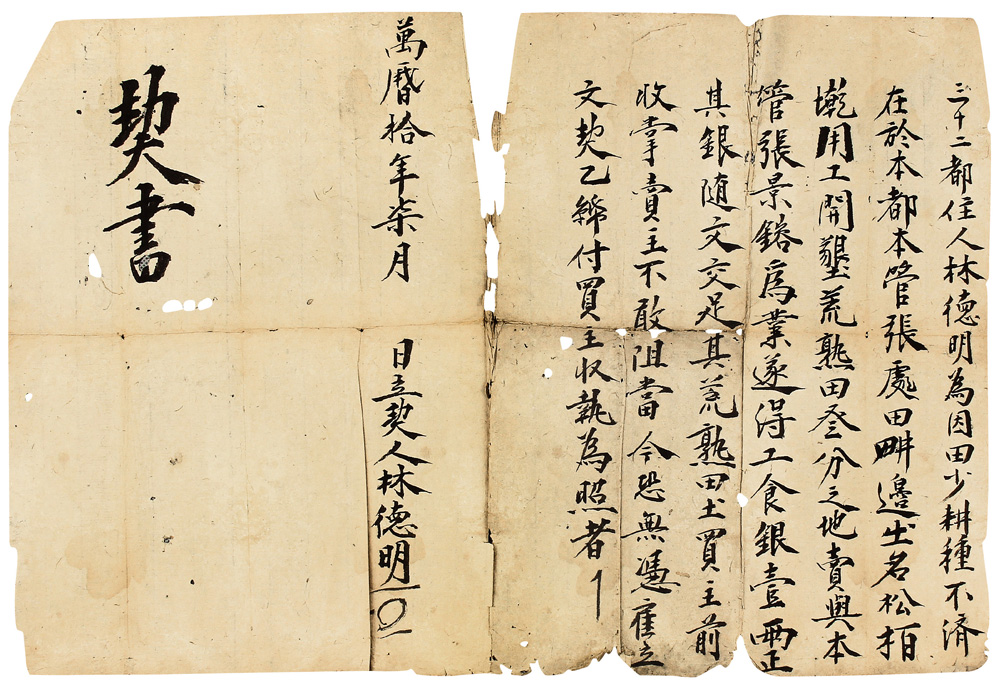 三十二都住人林德明為因田少耕種不濟
在於本都本管張處田畔邊土名松栢
墘用工開墾荒熟田叄分之地賣與本
管張景鎔爲業遂得工食銀壹兩正
其銀随文交足其荒熟田土買主前
收掌賣主不敢阻當今恐無憑雇立
文契乙帋付買主收執為照者
萬曆拾年柒月
日立契人林德明
契書